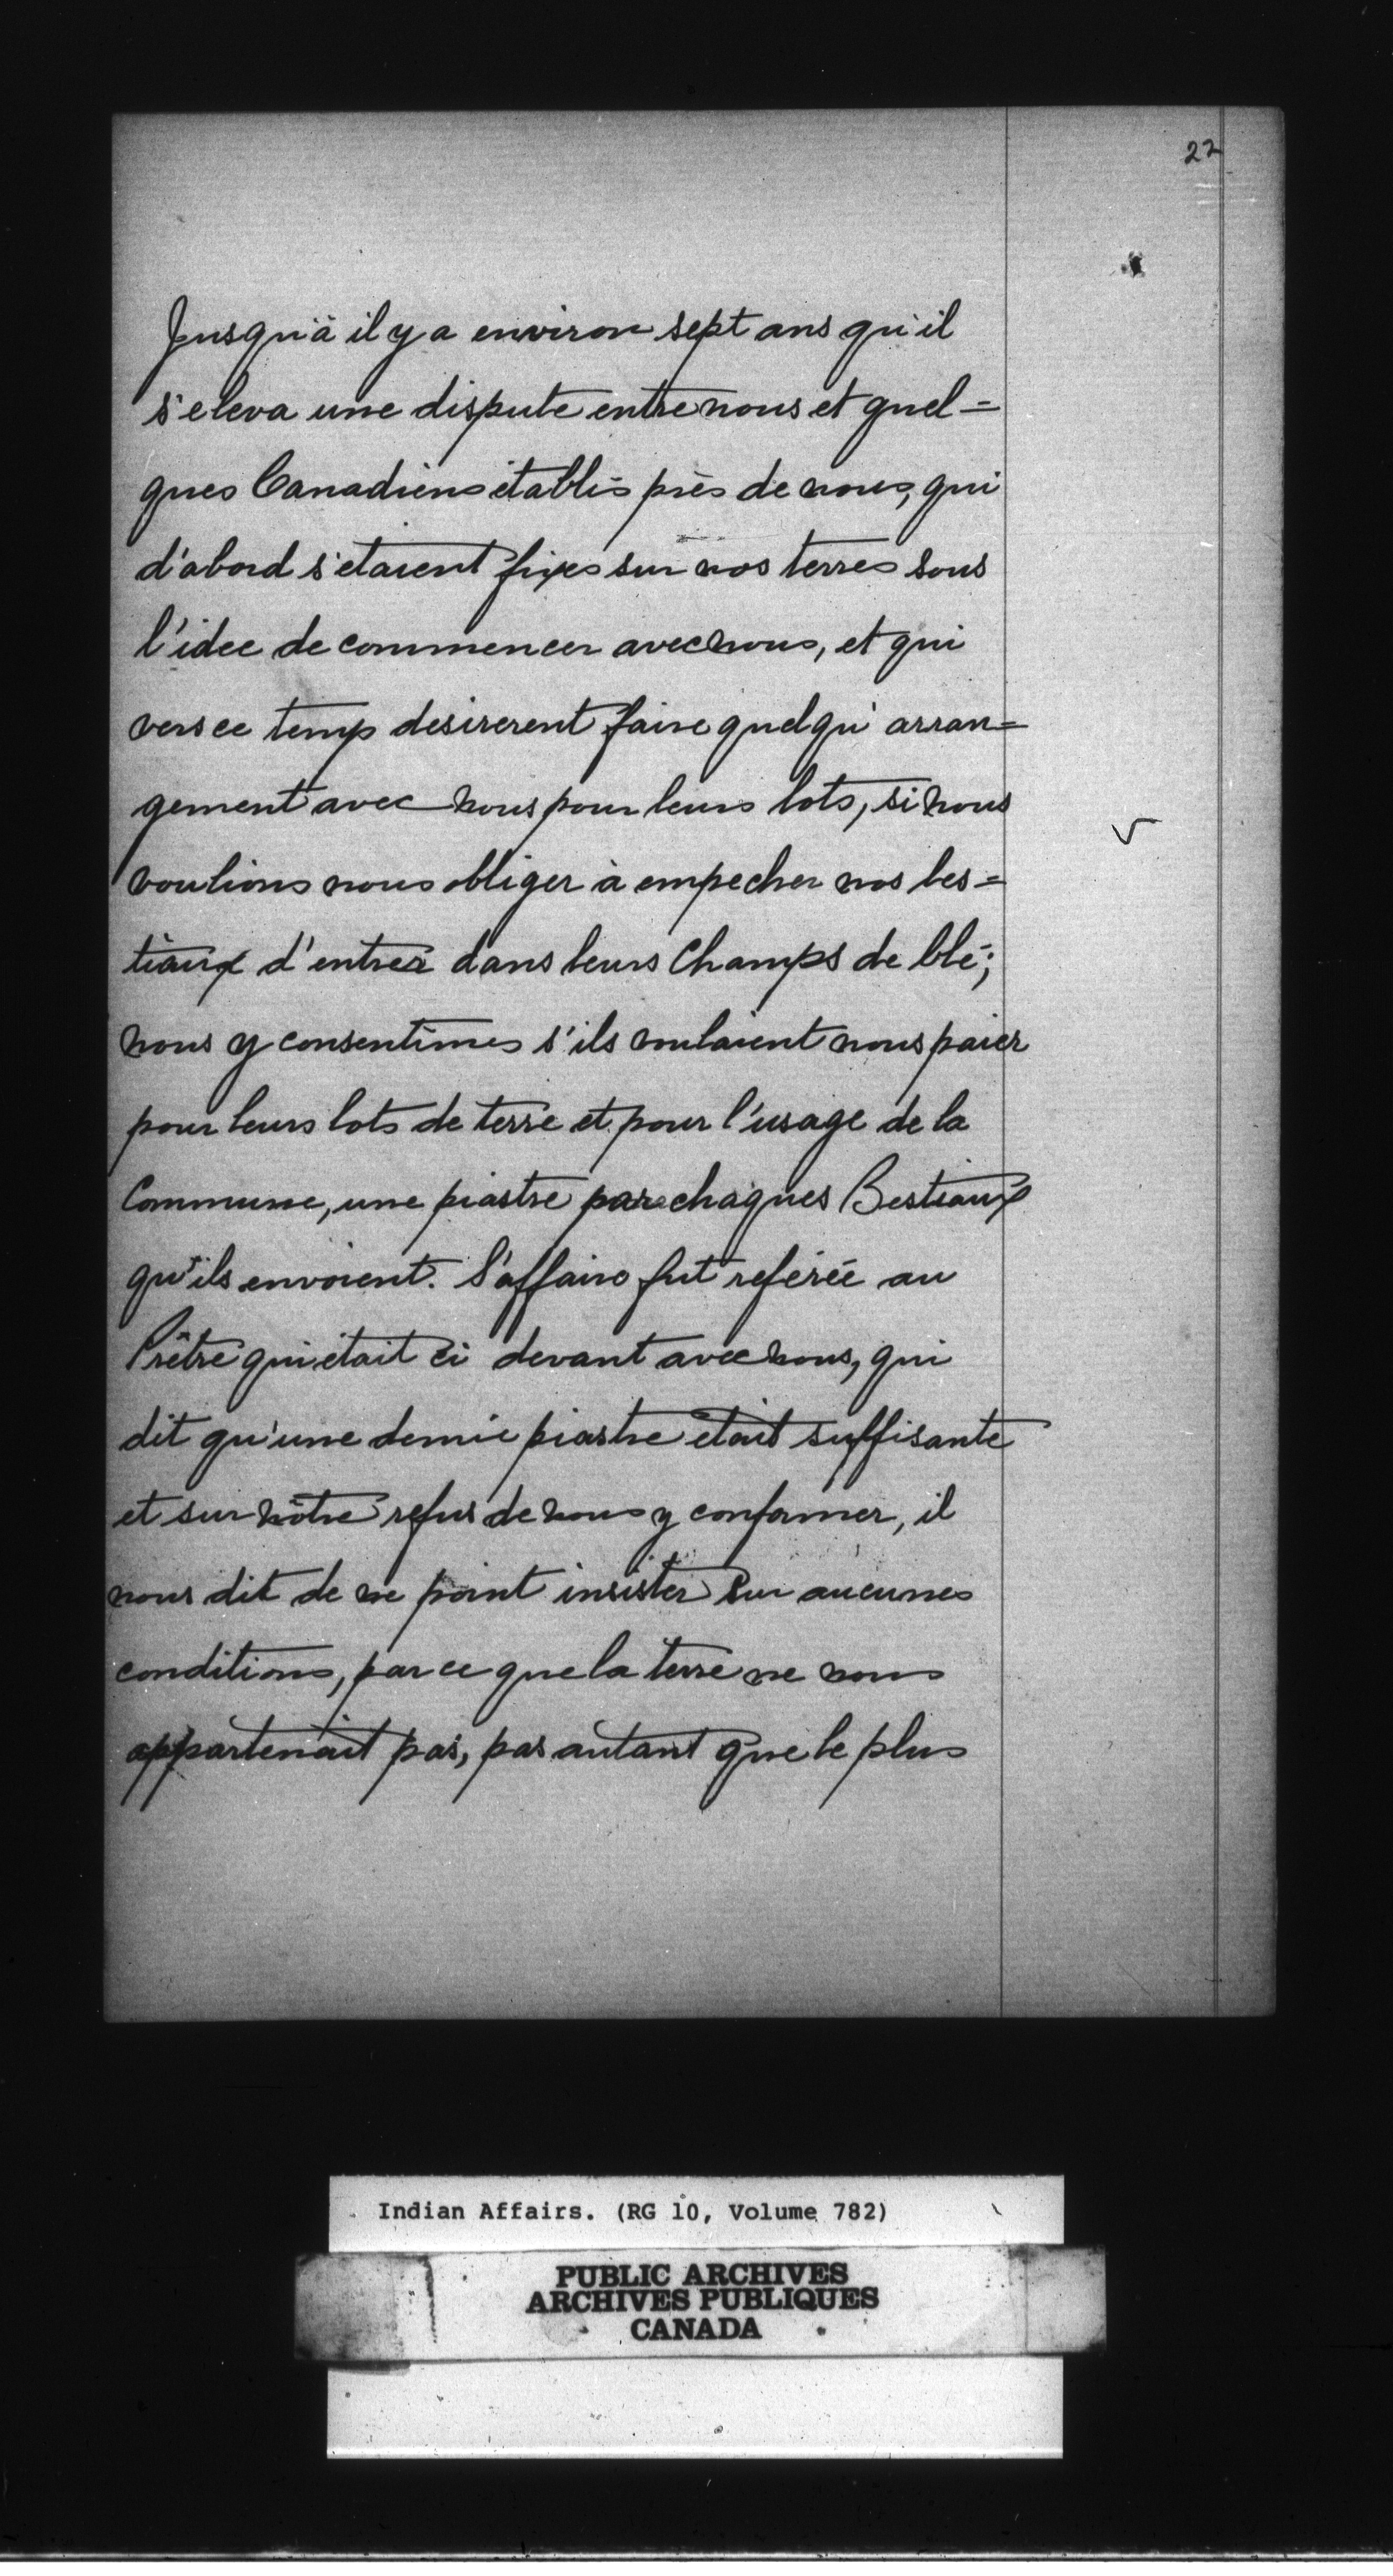 22
Jusqu'à il y a environ sept ans qu'il
s'eleva une dispute entre nous et quel=
ques Canadiens établis près de nous, qui
d'abord s'etaient fixes sur nos terres sous
l'idee de commencer avec nous, et qui
vers ce temp desirerent faire quelqu' arran=
gement avec nous pour leurs lots, si nous
voulions nous obliger à empecher nos bes=
tiaux d'entrer dans leurs Champs de blé;
nous y consentimes s'ils voulaient nous paier
pour leurs lots de terre et pour l'usage de la
Commune, une piastre par chaques Bestiaux
qu'ils envoient. L'affaire fut referée au
Prêtre qui était ci devant avec nous, qui
dit qu'une demie piastre etait suffisante
et sur nôtre refus de nous y conformer, il
nous dit de ne point insister sur aucunes
conditions, par ce que la terre ne nous
appartenait pas, pas autant que le plus
Indian Affairs. (RG 10, Volume 782)
PUBLIC ARCHIVES
ARCHIVES PUBLIQUES
CANADA